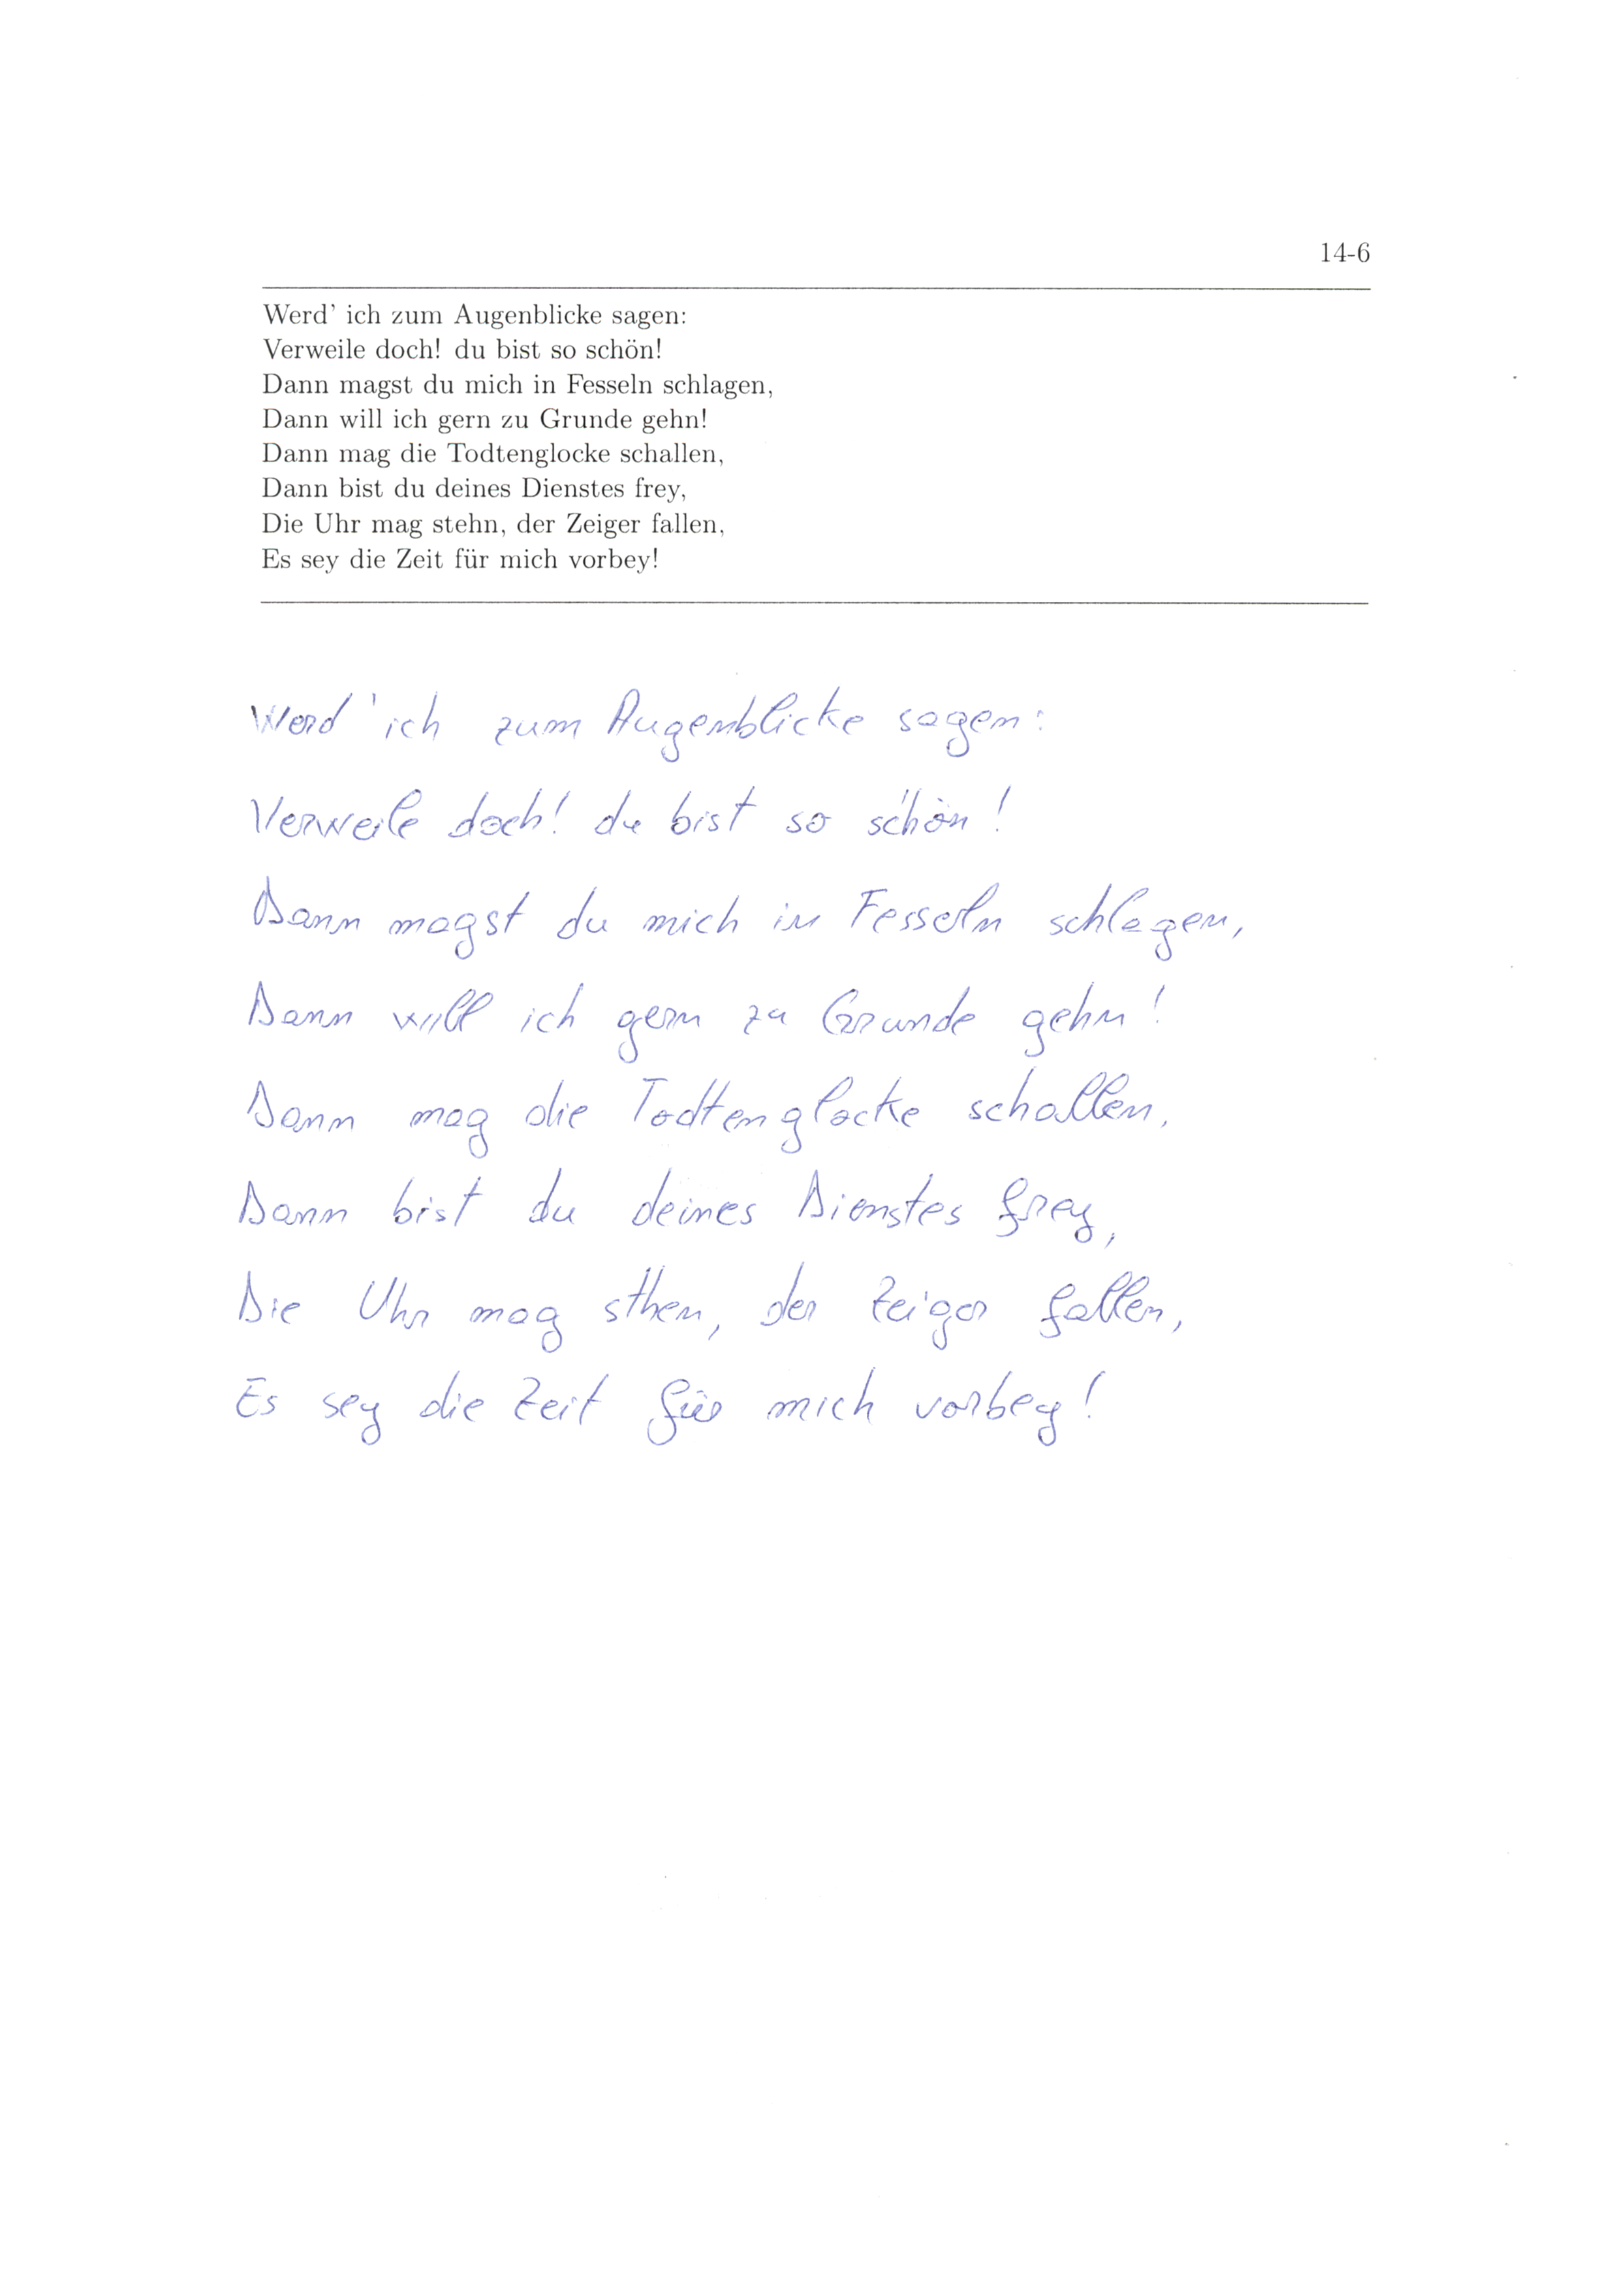 14-6
Werd' ich zum Augenblicke sagen:
Verweile doch! du bist so schön!
Dann magst du mich in Fesseln schlagen,
Dann will ich gern zu Grunde gehn!
Dann mag die Todtenglocke schallen,
Dann bist du deines Dienstes frey,
Die Uhr mag stehn, der Zeiger fallen,
Es sey die Zeit für mich vorbey!
Werd 'ich zum Augenblicke sagen:
Verweile doch! du bist so schön!
Dann magst du mich in Fesseln schlagen,
Dann will ich gern zu Grunde gehn!
Dann mag die Todtenglocke schallen,
Dann bist du deines Dienstes frey,
Die Uhr mag sthen, der Zeiger fallen,
Es sey die Zeit für mich vorbey!